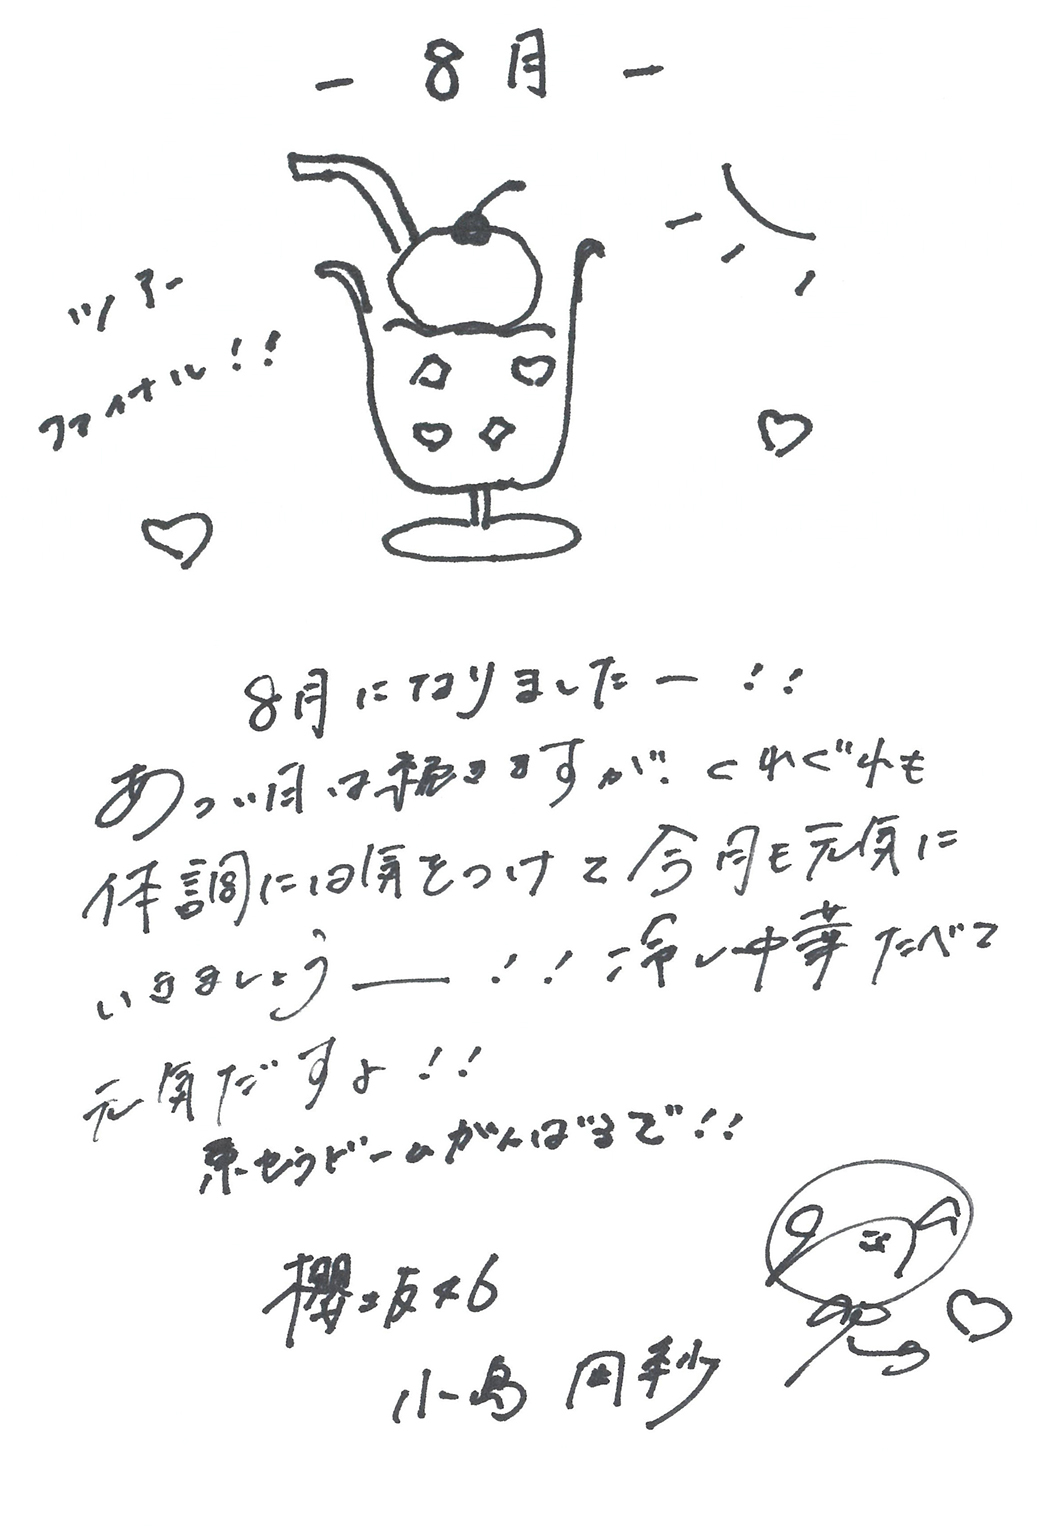 - 8月 -
ツアー
ファイナル!!
8月になりましたー!!
あつい日は続きますが、くれぐれも
体調にはお気をつけて今月も元気に
いきましょうー!!冷し中華たべて
元気だすよ!!
京セラドームがんばるで!!
櫻坂46
小島 凪紗